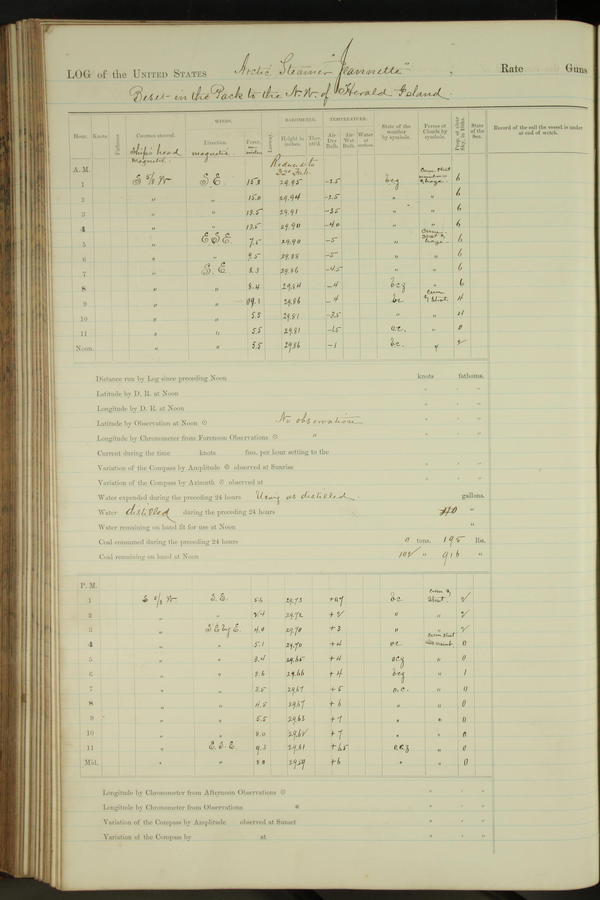 LOG of the UNITED STATES Arctic Steamer "Jeannette", Rate Guns
Beset in the Pack to the N.W. of Herald Island.
Hour. Knots Fathoms Courses steered. WINDS. Leeway. BAROMETER. TEMPERATURE. State of the weather by symbols. Forms of Clouds by symbols. Prop. of clear Sky, in 10ths. State of the Sea. Record of the sail the vessel is under at end of watch.
Direction. Force. Height in inches. Ther. att'd. Air Dry Bulb. Air Wet Bulb. Water at surface.
Ship's head magnetic. magnetic.
Reduced to 32° Fah.
A. M.
1 S 5/8 W S. E. 29.95 -2.5 bcg 6
2 " " 15.0 29.94 -2.5 " " 6
3 " " 13.5 29.91 -3.5 " " 6
4 " " 13.5 29.90 -4.0 " " 6
5 " E.S.E. 7.5 29.90 -5 " 6
6 " " 9.5 29.88 -5 " " 6
7 " S. E. 8.3 29.86 -4.5 " " 6
8 " " 8.4 29.84 -4 bcg " 6
9 " " 29.86 -4 bc Cum & Strat. 4
10 " " 5.5 29.81 -3.5 " " 4
11 " " 5.5 29.81 -1.5 o.c. " 0
Noon. " " 5.5 29.86 -1 b.c. " 2
Distance run by Log since preceding Noon knots fathoms.
Latitude by D. R. at Noon
Longitude by D. R. at Noon
Latitude by Observation at Noon ⊙ No observation
Longitude by Chronometer from Forenoon Observations ⊙ "
Current during the time knots fms. per hour setting to the
Variation of the Compass by Amplitude ⊙ observed at Sunrise
Variation of the Compass by Azimuth ⊙ observed at
Water expended during the preceding 24 hours Using as distilled gallons.
Water distilled during the preceding 24 hours "
Water remaining on hand fit for use at Noon "
Coal consumed during the preceding 24 hours 0 tons. 195 lbs.
Coal remaining on hand at Noon " 916 "
P. M.
1 S 5/8 W S. E. 5.6 29.73 bc Cum & Strat. 2
2 " " 2.4 29.72 +2 " " 2
3 " S E by E. 4.0 29.70 +3 " " 2
4 " " 5.1 29.70 +4 oc 0
5 " " 3.4 29.65 +4 ocg " 0
6 " " 3.6 29.66 +4 bcg " 1
7 " " 3.5 29.67 +5 o.c. " 0
8 " " 4.5 29.67 +6 " " 0
9 " " 5.5 29.63 +7 " " 0
10 " " 8.0 29.62 +7 " " 0
11 " E. S. E. 9.3 29.61 +6.5 " 0
Mid. " " 8.0 29.59 +6 " " 0
Longitude by Chronometer from Afternoon Observations ⊙
Longitude by Chronometer from Observations *
Variation of the Compass by Amplitude observed at Sunset
Variation of the Compass by at